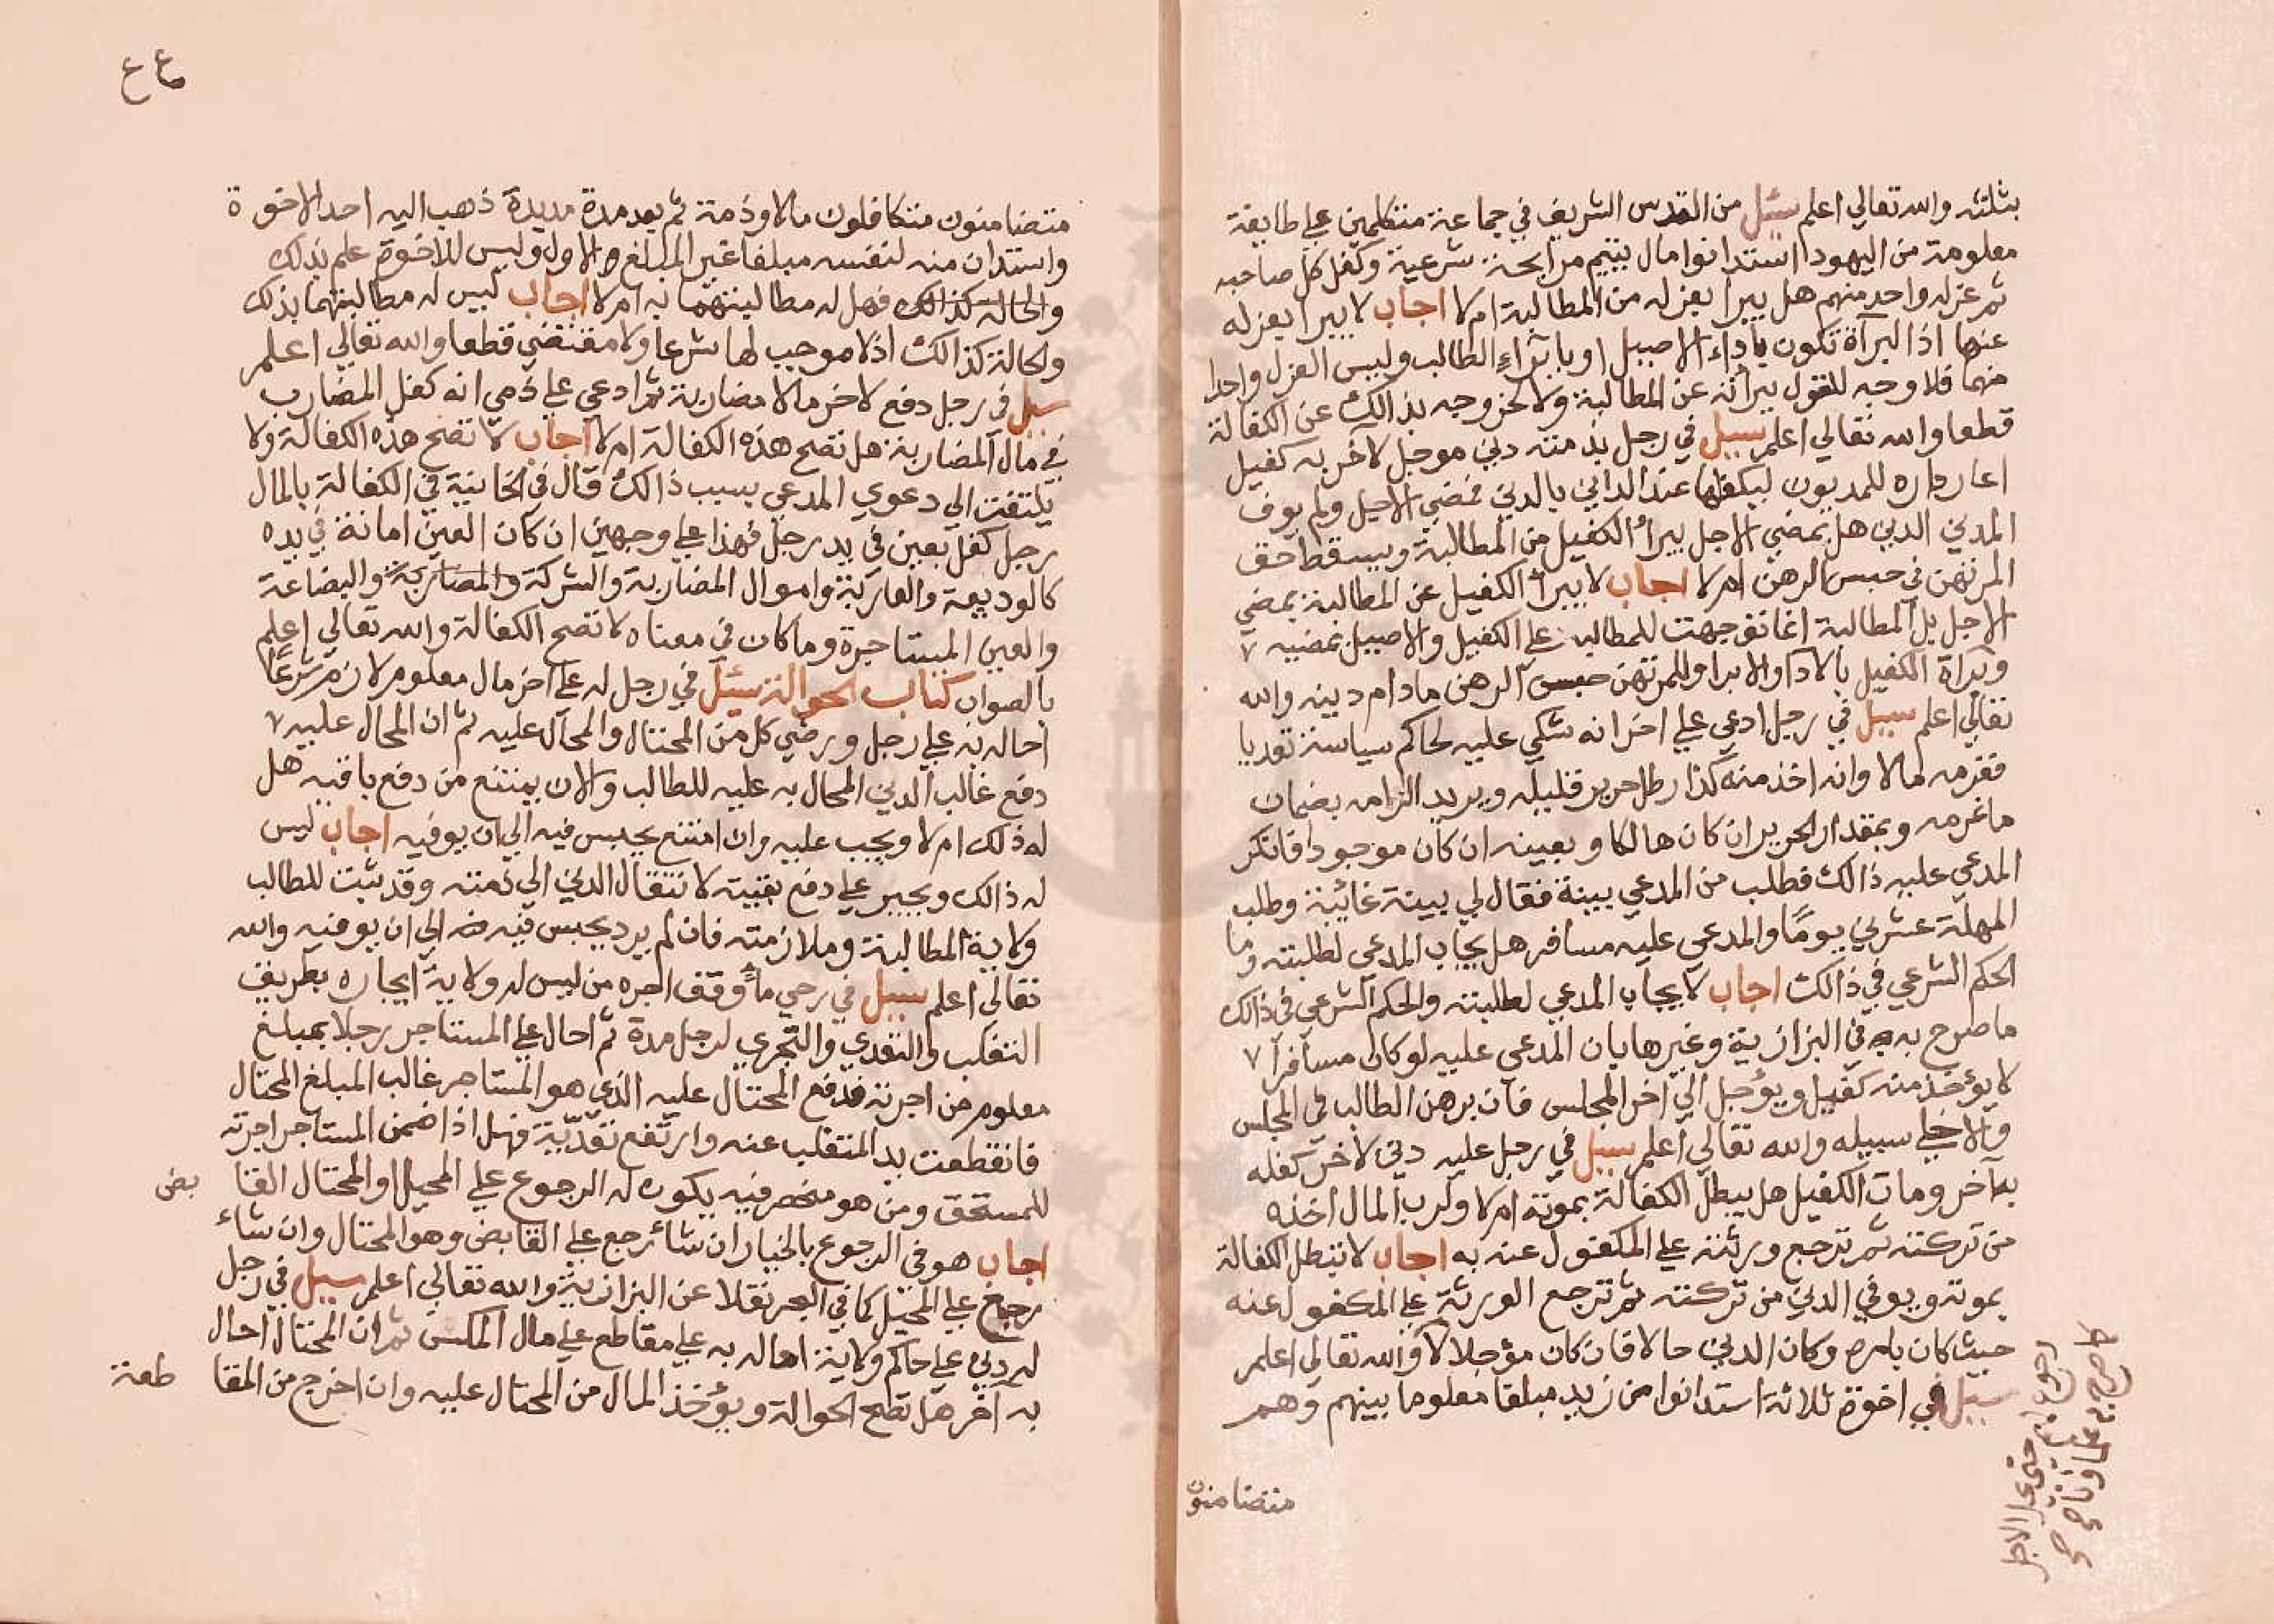 بثلثه والله تعالي اعلم سئيل من القدس الشريف في جماعة متكلمين علي طايفة
معلومة من اليهود استدانوا مال يتيم مرابحة شرعية وكفل كل صاحبه
ثم عزل واحد منهم هل يبرا بعزله من المطالبة ام لا اجاب لا يبرا بعزله
عنها اذ البرآة تكون باداء الاصيل او بابراء الطالب وليس العزل واحدا
منهما فلا وجه للقول ببرأته عن المطالبة ولا لخروجه بذالك عن الكفالة
قطعا والله تعالي اعلم سيل في رجل بذمته دين موجل لاخر به كفيل
اعار داره للمديون ليكفلها عند الداين بالدين فمضي الاجل ولم يوف
المدين الدين هل بمضي الاجل يبرأ الكفيل من المطالبة ويسقط حق
المرتهن في حبس الرهن ام لا اجاب لا يبرأ الكفيل عن المطالبة بمضي
الاجل بل المطالبة انما توجهت للمطالب علي الكفيل والاصيل بمضيه ٧
وبرآة الكفيل بالادا والابرا وللمرتهن حبس الرهن مادام دينه والله
تعالي اعلم سيل في رجل ادعي علي اخر انه شكي عليه لحاكم سياسة تعديا
فغرمه مالا وانه اخذ منه كذا رطل حرير قليله ويريد الزامه بضمان
ما غرمه وبمقدار الحرير ان كان هالكا وبعينه ان كان موجودا فانكر
المدعي عليه ذالك فطلب من المدعي بينة فقال لي بينة غائبة وطلب
المهلة عشرين يومًا والمدعي عليه مسافر هل يجاب المدعي لطلبته وما
الحكم الشرعي في ذالك اجاب لا يجاب المدعي لطلبته والحكم الشرعي في ذالك
ما صرح به في البزازية وغيرها بان المدعي عليه لو كان مسافرا ٧
لا يؤخذ منه كفيل ويؤجل الي اخر المجلس فان برهن الطالب في المجلس
والا خلي سبيله والله تعالي اعلم سيل في رجل عليه دين لاخر كفله
به آخر ومات الكفيل هل يبطل الكفالة بموته ام لا ولرب المال اخذه
من تركته ثم ترجع ورثته علي المكفول عنه به اجاب لا تبطل الكفالة
بموته ويوفي الدين من تركته ثم ترجع الورثة علي المكفول عنه
حيث كان بامره وكان الدين حالا فان كان مؤجلا لا والله تعالي اعلم
سيل في اخوة ثلاثة استدانوا من زيد مبلغا معلوما بينهم وهم
متضامنون
٤٤
متضامنون متكافلون مالا وذمة ثم بعد مدة مديدة ذهب اليه احد الاخوة
واستدان منه لنفسه مبلغا غير المبلغ الاول وليس للاخوة علم بذلك
والحالة كذالك فهل له مطالبتهما به ام لا اجاب ليس له مطالبتهما بذلك
والحالة كذالك اذ لا موجب لها شرعا ولا مقتضي قطعا والله تعالي اعلم
سيل في رجل دفع لاخر مالا مضاربة ثم ادعي علي ذمي انه كفل المضارب
في مال المضاربة هل تصح هذه الكفالة ام لا اجاب لا تصح هذه الكفالة ولا
يلتفت الي دعوي المدعي بسبب ذالك قال في الخانية في الكفالة بالمال
رجل كفل بعين في يد رجل فهذا علي وجهين ان كان العين امانة في يده
كالوديعة والعارية واموال المضاربة والشركة والمضاربة والبضاعة
والعين المستاجرة وما كان في معناه لا تصح الكفالة والله تعالي اعلم
بالصواب كتاب الحوالة سئيل في رجل له علي اخر مال معلوم لازم شرعًا
احاله به علي رجل ورضي كل من المحتال والمحال عليه ثم ان المحال عليه ٧
دفع غالب الدين المحال به عليه للطالب والان يمتنع من دفع باقيه هل
له ذلك ام لا ويجب عليه وان امتنع يحبس فيه الي ان يوفيه اجاب ليس
له ذالك ويجبر علي دفع بقيته لانتقال الدين الي ذمته وقد ثبت للطالب
ولاية المطالبة وملازمته فان لم يرد يحبس فيه الي ان يوفيه والله
تعالي اعلم سيل في رحي ماءٍ وقف اجره من ليس له ولاية ايجاره بطريق
التغلب والتعدي والتجري لرجل مدة ثم احال علي المستاجر رجلا بمبلغ
معلوم من اجرته فدفع المحتال عليه الذي هو المستاجر غالب المبلغ المحتال
فانقطعت يد المتغلب عنه وارتفع تعديه فهل اذا ضمن المستاجر اجرته
للمستحق ومن هو منحصر فيه يكون له الرجوع علي المحيل او المحتال القابض
اجاب هو في الرجوع بالخيار ان شاء رجع علي القابض وهو المحتال وان شاء
رجع علي المحيل كما في البحر نقلا عن البزازية والله تعالي اعلم سيل في رجل
له دين علي حاكم ولاية احاله به علي مقاطع علي مال المكس ثم ان المحتال احال
به آخر هل تصح الحوالة ويؤخذ المال من المحتال عليه وان اخرج من المقاطعة